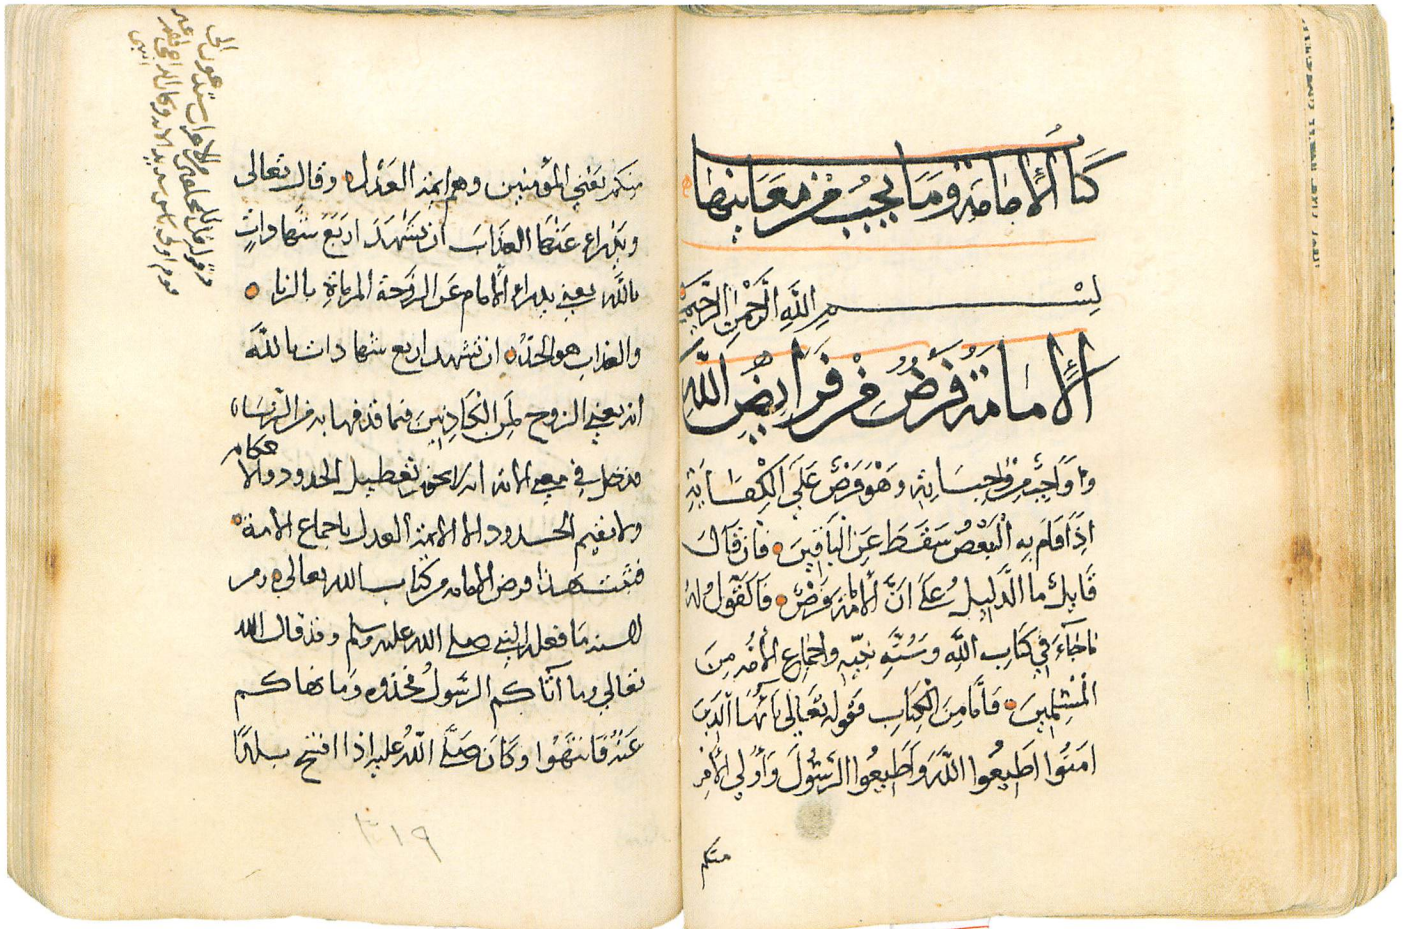 كتاب الإمامة وما يجب من معانيها
بسم الله الرحمن الرحيم
الإمامة فرض من فرايض الله
وواجب من واجباته وهو فرض على الكفاية
اذا قام به البعض سقط عن الباقين فان قال
قايل ما الدليل على ان الإمامة فرض فالقول له
ما جاء في كتاب الله وسنة نبيه واجماع الأمة من
المسلمين فأما من الكتاب فقوله تعالى يا أيها الذين
امنوا اطيعوا الله واطيعوا الرسول وأولي الأمر
منكم
منكم يعني المؤمنين وهم ايمة العدل وقال تعالى
ويدراء عنها العذاب ان تشهد اربع شهادات
بالله يعني يدراء الأمام عن الزوجة المرماة بالزنا
والعذاب هو الحد ان تشهد اربع شهادات بالله
انه يعني الزوج لمن الكاذبين فيما قذفها به من الزنا
فدخل في معنى الآية انه لا يجوز تعطيل الحدود والأحكام
ولا يقيم الحدود الا الائمة العدل باجماع الامة
فثبت هذا فرض الامامة من كتاب الله تعالى ومن
السنة ما فعله النبي صلى الله عليه وسلم وقد قال الله
تعالى وما آتاكم الرسول فخذوه وما نهاكم
عنه فانتهوا وكان صلى الله عليه اذا افتتح بلدا
٣١٩